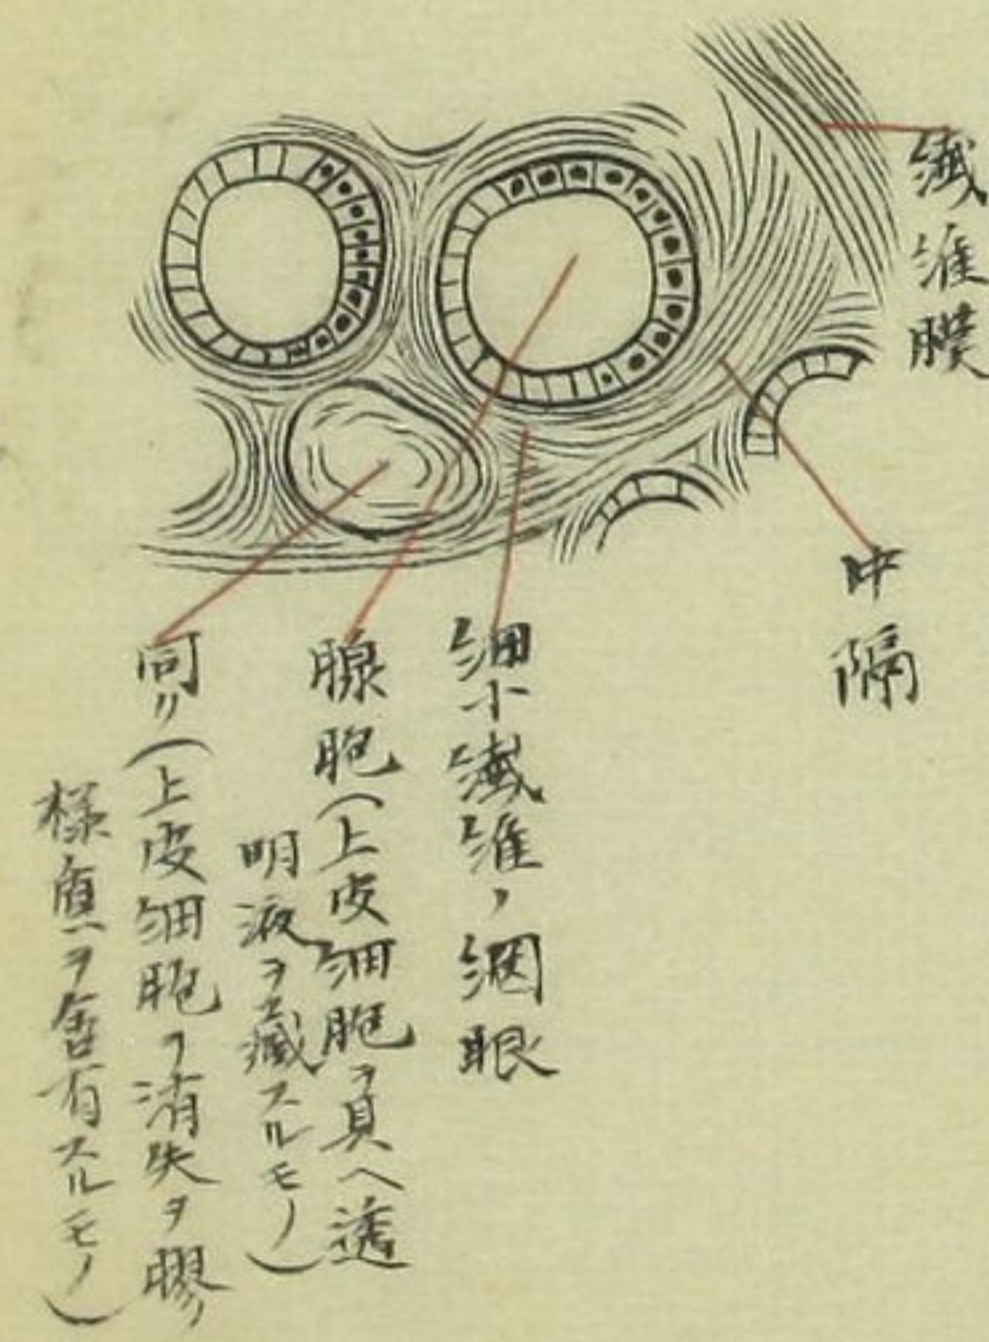 繊維膜
中隔
細小繊維ノ網眼
腺胞(上皮細胞ヲ具ヘ透
明液ヲ蔵スルモノ)
同〃(上皮細胞ヲ消失ヲ膠
様質ヲ含有スルモノ)